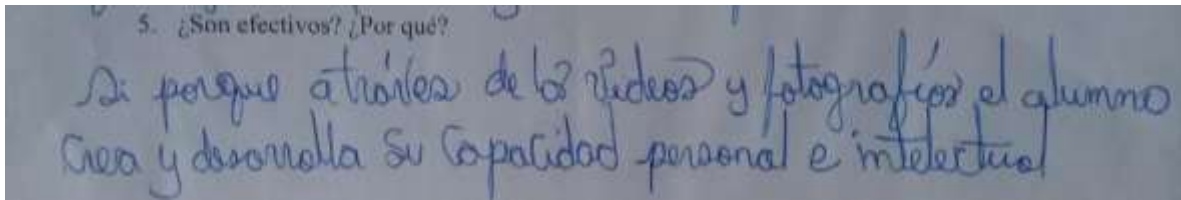 5. ¿Son efectivos? ¿Por qué?
Si porque atraviés de los videos y fotografías el alumno
Crea y desarrolla su Capacidad personal e intelectual